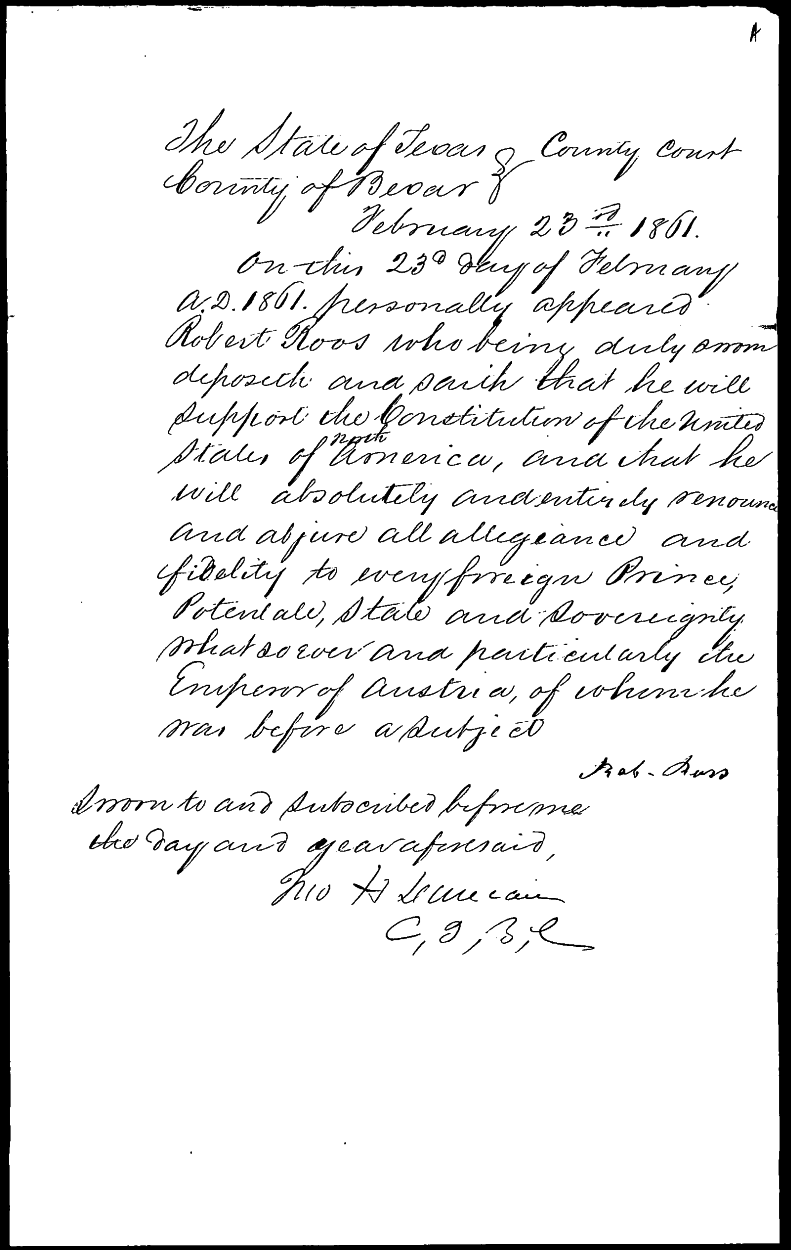 A
The State of Texas } County Court
County of Bexar }
February 23rd 1861.
On this 23d day of February
A.D. 1861. personally appeared
Robert Roos who being duly sworn
deposeth and saith that he will
support the Constitution of the United
States of north America, and that he
will absolutely and entirely renounce
and abjure all allegiance and
fidelity to every foreign Prince,
Potentate, State and Sovereignty
whatsoever and particularly the
Emperor of Austria, of whom he
was before a subject
Rob. Roos
Sworn to and subscribed before me
the day and year aforesaid,
Jno H Duncan
C, J, B, C